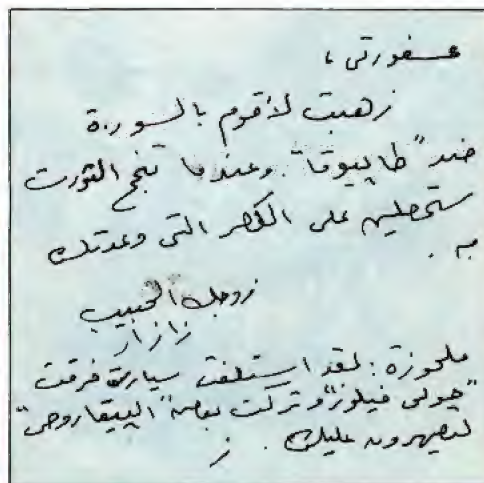 عسفورتى ،
زهبت لأقوم بالسورة
ضد "طاييوقا". وعندما تنجح الثورت
ستحصلين على الكصر التى وعدتك
به .
زوجك الحبيب
زازار
ملحوزة : لقد استلفت سيارت فرقت
"جولى فيلوز" وتركت بعصه "البيتقاروحى"
ليصهرون عليك . ز